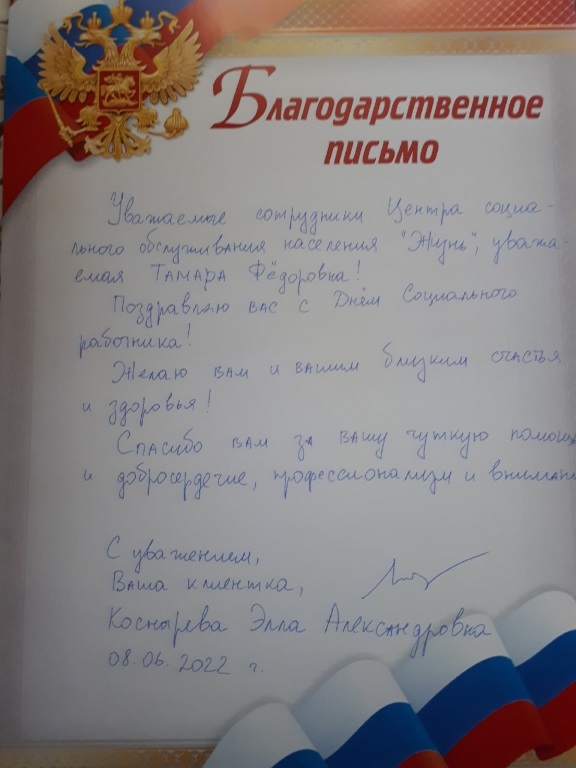 Благодарственное
письмо
Уважаемые сотрудники Центра социа-
льного обслуживания населения "Жунь", уважа-
емая Тамара Фёдоровна!
Поздравляю вас с Днём Социального
работника!
Желаю вам и вашим близким счастья
и здоровья!
Спасибо вам за вашу чуткую помощ
и добросердечие, профессионализм и внимани
С уважением,
Ваша клиентка,
Коснырева Элла Александровна
08.06.2022 г.